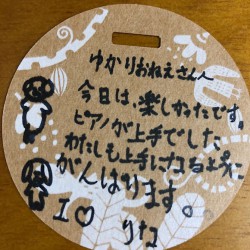 ゆかりおねえさんへ
今日は、楽しかったです。
ピアノが上手でした
わたしも上手になるように
がんばります。
I♡ りこ